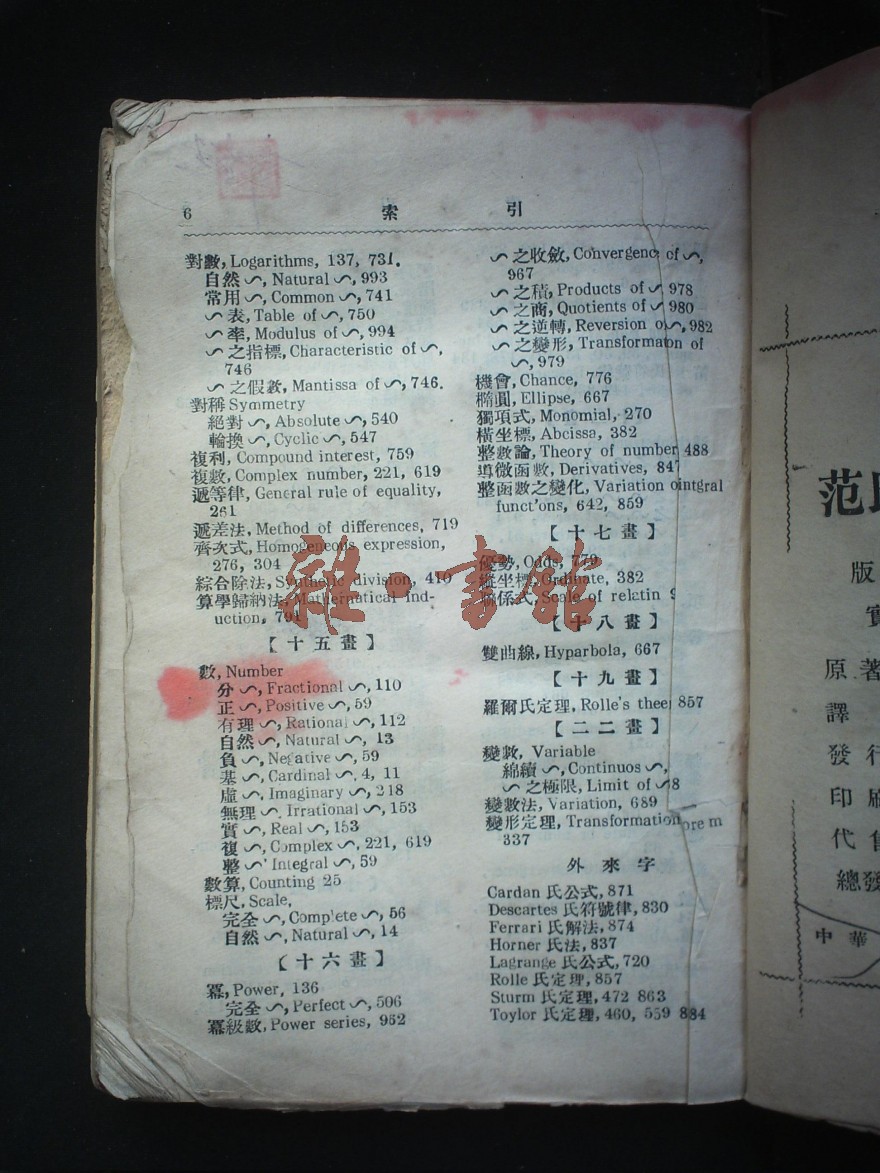 6 索 引
對數, Logarithms, 137, 731.
自然 〜, Natural 〜, 993
常用 〜, Common 〜, 741
〜 表, Table of 〜, 750
〜 率, Modulus of 〜, 994
〜 之指標, Characteristic of 〜,
746
〜 之假數, Mantissa of 〜, 746.
對稱 Symmetry
絕對 〜, Absolute 〜, 540
輪換 〜, Cyclic 〜, 547
複利, Compound interest, 759
複數, Complex number, 221, 619
遞等律, General rule of equality,
261
遞差法, Method of differences, 719
齊次式, Homogeneous expression,
276, 304
綜合除法, Synthetic division, 410
算學歸納法, Mathematical ind-
uction, 791
【十五畫】
數, Number
分 〜, Fractional 〜, 110
正 〜, Positive 〜, 59
有理 〜, Rational 〜, 112
自然 〜, Natural 〜, 13
負 〜, Negative 〜, 59
基 〜, Cardinal 〜, 4, 11
虛 〜, Imaginary 〜, 218
無理 〜, Irrational 〜, 153
實 〜, Real 〜, 153
複 〜, Complex 〜, 221, 619
整 〜 Integral 〜, 59
數算, Counting 25
標尺, Scale,
完全 〜, Complete 〜, 56
自然 〜, Natural 〜, 14
【十六畫】
冪, Power, 136
完全 〜, Perfect 〜, 506
冪級數, Power series, 952
〜 之收斂, Convergenc of 〜,
967
〜 之積, Products of 〜 978
〜 之商, Quotients of 〜 980
〜 之逆轉, Reversion o 〜, 982
〜 之變形, Transformaton of
〜, 979
機會, Chance, 776
橢圓, Ellipse, 667
獨項式, Monomial, 270
橫坐標, Abcissa, 382
整數論, Theory of number 488
導微函數, Derivatives, 847
整函數之變化, Variation ointgral
funct'ons, 642, 859
【十七畫】
優勢, Odds, 779
縱坐標, Ordinate, 382
關係式, Scale of relatin 9
【十八畫】
雙曲線, Hyparbola, 667
【十九畫】
羅爾氏定理, Rolle's theer 857
【二二畫】
變數, Variable
綿續 〜, Continuos 〜,
〜 之極限, Limit of 〜8
變數法, Variation, 689
變形定理, Transformation ore m
337
外來字
Cardan 氏公式, 871
Descartes 氏符號律, 830
Ferrari 氏解法, 874
Horner 氏法, 837
Lagrange 氏公式, 720
Rolle 氏定理, 857
Sturm 氏定理, 472 863
Toylor 氏定理, 460, 559 884
雜·書館
范
版
實
原著
譯
發行
印刷
代
總發
中華